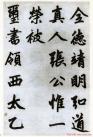 全德靖明知道
真人張公惟一
榮被
璽書領西太乙